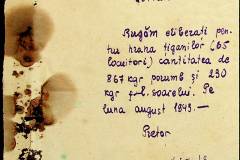 Rugăm eliberați pen-
tru hrana țiganilor (65
locuitori) cantitatea de
867 kgr porumb și 290
kgr fl. soarelui. Pe
luna august 1943. —
Pretor